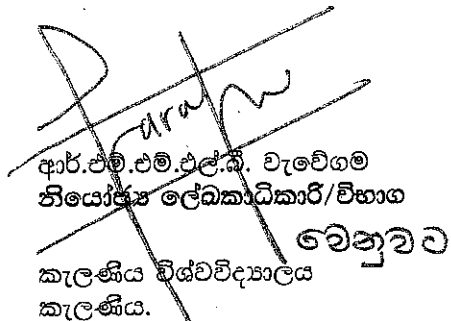 ආර්.එම්.එම්.එල්.බී. වැවේගම
නියෝජ්‍ය ලේඛකාධිකාරී/විභාග
වෙනුවට
කැලණිය විශ්වවිද්‍යාලය
කැලණිය.